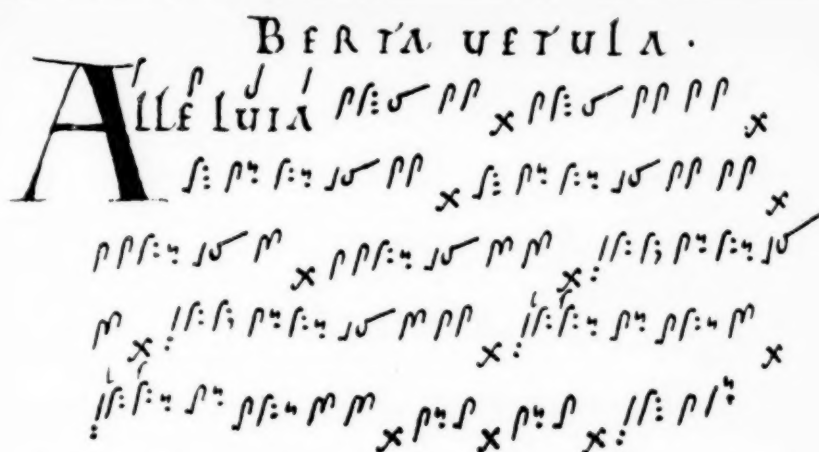 BERTA VETULA.
ALLELUIA